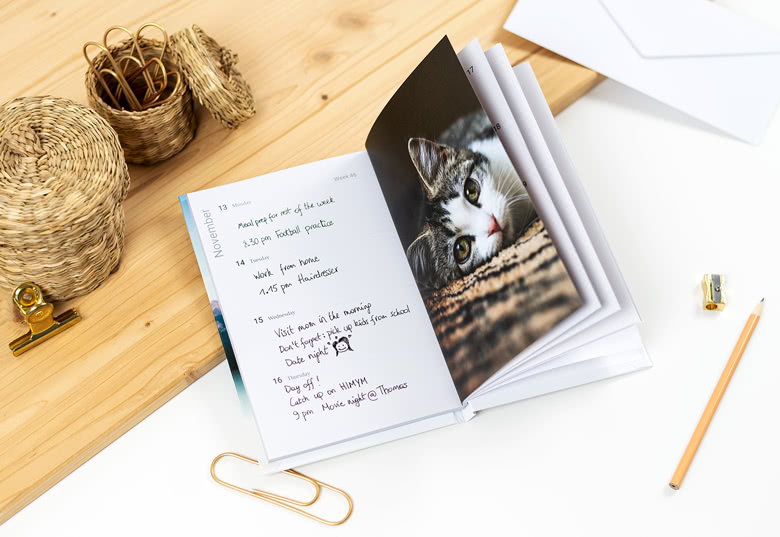 November
Week 46
13 Monday
Meal prep for rest of the week
8.30 pm Football practice
14 Tuesday
Work from home
1.15 pm Hairdresser
15 Wednesday
Visit mom in the morning
Don't forget: pick up kids from school
Date night
16 Thursday
Day off!
Catch up on HIMYM
9 pm Movie night @ Thomas
17
18